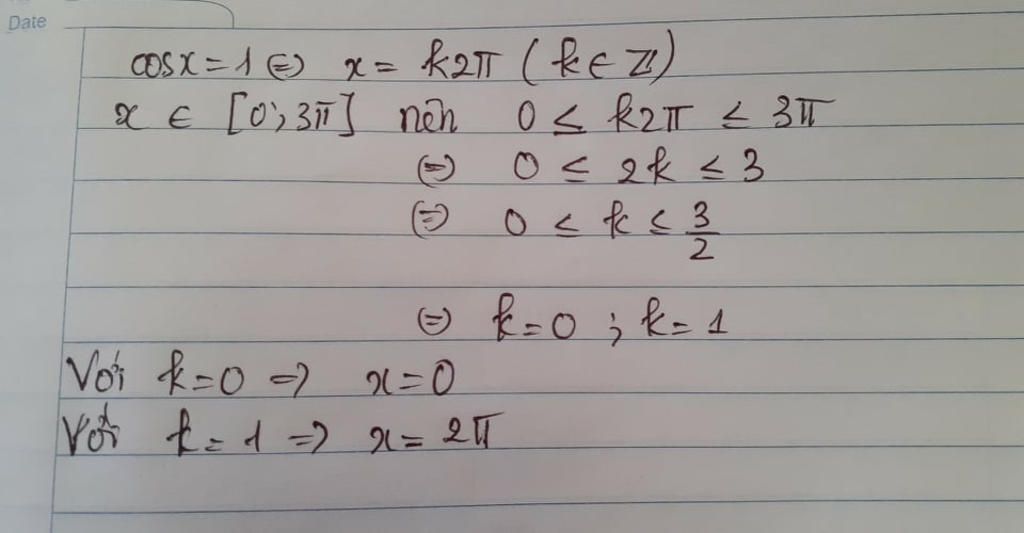 Date
cosx = 1 ⇔ x = k2π ( k ∈ ℤ )
x ∈ [0; 3π] nên 0 ≤ k2π ≤ 3π
⇔ 0 ≤ 2k ≤ 3
⇔ 0 ≤ k ≤ 3/2
⇔ k = 0 ; k = 1
Với k = 0 ⇒ x = 0
Với k = 1 ⇒ x = 2π